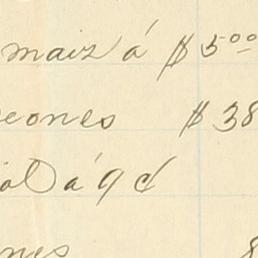 maiz á $5.00
eones $38
ol á 9 ₡
nes 8